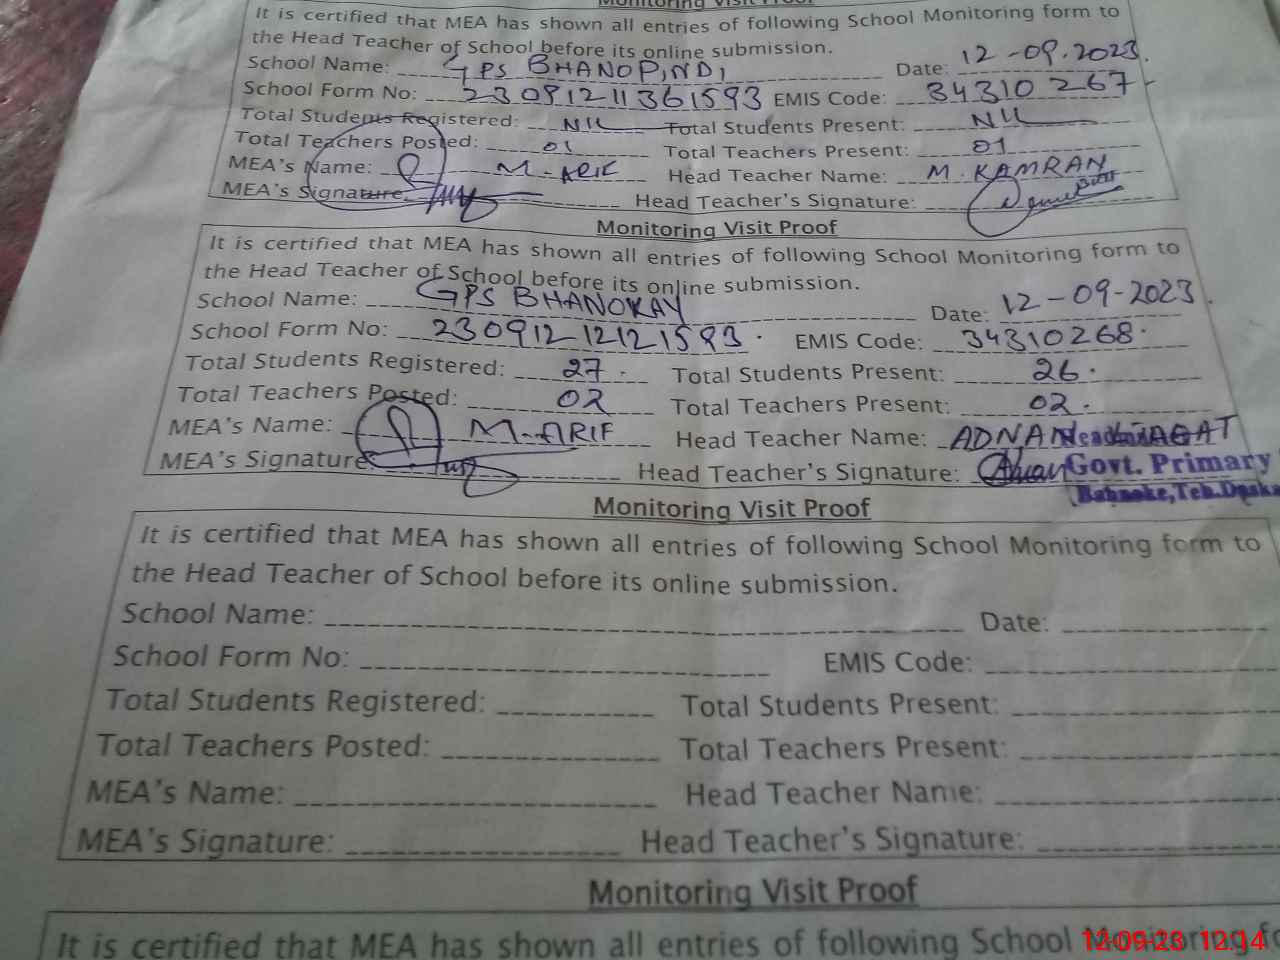 Monitoring Visit Proof
It is certified that MEA has shown all entries of following School Monitoring form to
the Head Teacher of School before its online submission.
School Name: GPS BHANOPINDI Date: 12-09.2023.
School Form No: 23091211361593 EMIS Code: 34310267
Total Students Registered: NIL Total Students Present: NIL
Total Teachers Posted: 01 Total Teachers Present: 01
MEA's Name: M-ARIF Head Teacher Name: M. KAMRAN
MEA's Signature: Head Teacher's Signature:
Monitoring Visit Proof
It is certified that MEA has shown all entries of following School Monitoring form to
the Head Teacher of School before its online submission.
School Name: GPS BHANOKAY Date: 12-09-2023.
School Form No: 23091212121593. EMIS Code: 34310268.
Total Students Registered: 27. Total Students Present: 26.
Total Teachers Posted: 02 Total Teachers Present: 02.
MEA's Name: M-ARIF Head Teacher Name: ADNAN
MEA's Signature: Head Teacher's Signature: Govt. Primary
Monitoring Visit Proof
It is certified that MEA has shown all entries of following School Monitoring form to
the Head Teacher of School before its online submission.
School Name: Date:
School Form No: EMIS Code:
Total Students Registered: Total Students Present:
Total Teachers Posted: Total Teachers Present:
MEA's Name: Head Teacher Name:
MEA's Signature: Head Teacher's Signature:
Monitoring Visit Proof
It is certified that MEA has shown all entries of following School Monitoring
12-09-23 12:14